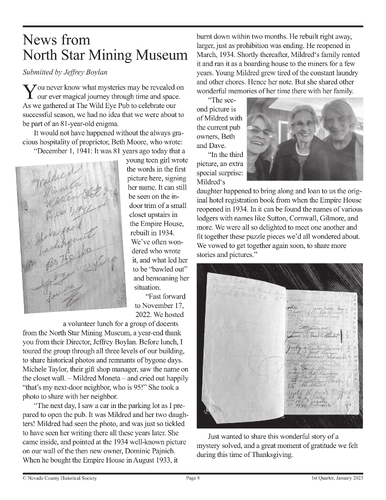 News from
North Star Mining Museum
Submitted by Jeffrey Boylan
You never know what mysteries may be revealed on
our ever magical journey through time and space.
As we gathered at The Wild Eye Pub to celebrate our
successful season, we had no idea that we were about to
be part of an 81-year-old enigma.
It would not have happened without the always gra-
cious hospitality of proprietor, Beth Moore, who wrote:
"December 1, 1941: It was 81 years ago today that a
young teen girl wrote
the words in the first
picture here, signing
her name. It can still
be seen on the in-
door trim of a small
closet upstairs in
the Empire House,
rebuilt in 1934.
We've often won-
dered who wrote
it, and what led her
to be "bawled out"
and bemoaning her
situation.
"Fast forward
to November 17,
2022. We hosted
a volunteer lunch for a group of docents
from the North Star Mining Museum, a year-end thank
you from their Director, Jeffrey Boylan. Before lunch, I
toured the group through all three levels of our building,
to share historical photos and remnants of bygone days.
Michele Taylor, their gift shop manager, saw the name on
the closet wall. – Mildred Moneta – and cried out happily
"that's my next-door neighbor, who is 95!" She took a
photo to share with her neighbor.
"The next day, I saw a car in the parking lot as I pre-
pared to open the pub. It was Mildred and her two daugh-
ters! Mildred had seen the photo, and was just so tickled
to have seen her writing there all these years later. She
came inside, and pointed at the 1934 well-known picture
on our wall of the then new owner, Dominic Pajnich.
When he bought the Empire House in August 1933, it
burnt down within two months. He rebuilt right away,
larger, just as prohibition was ending. He reopened in
March, 1934. Shortly thereafter, Mildred's family rented
it and ran it as a boarding house to the miners for a few
years. Young Mildred grew tired of the constant laundry
and other chores. Hence her note. But she shared other
wonderful memories of her time there with her family.
"The sec-
ond picture is
of Mildred with
the current pub
owners, Beth
and Dave.
"In the third
picture, an extra
special surprise:
Mildred's
daughter happened to bring along and loan to us the orig-
inal hotel registration book from when the Empire House
reopened in 1934. In it can be found the names of various
lodgers with names like Sutton, Cornwall, Gilmore, and
more. We were all so delighted to meet one another and
fit together these puzzle pieces we'd all wondered about.
We vowed to get together again soon, to share more
stories and pictures."
Just wanted to share this wonderful story of a
mystery solved, and a great moment of gratitude we felt
during this time of Thanksgiving.
© Nevada County Historical Society
Page 8
1st Quarter, January 2023